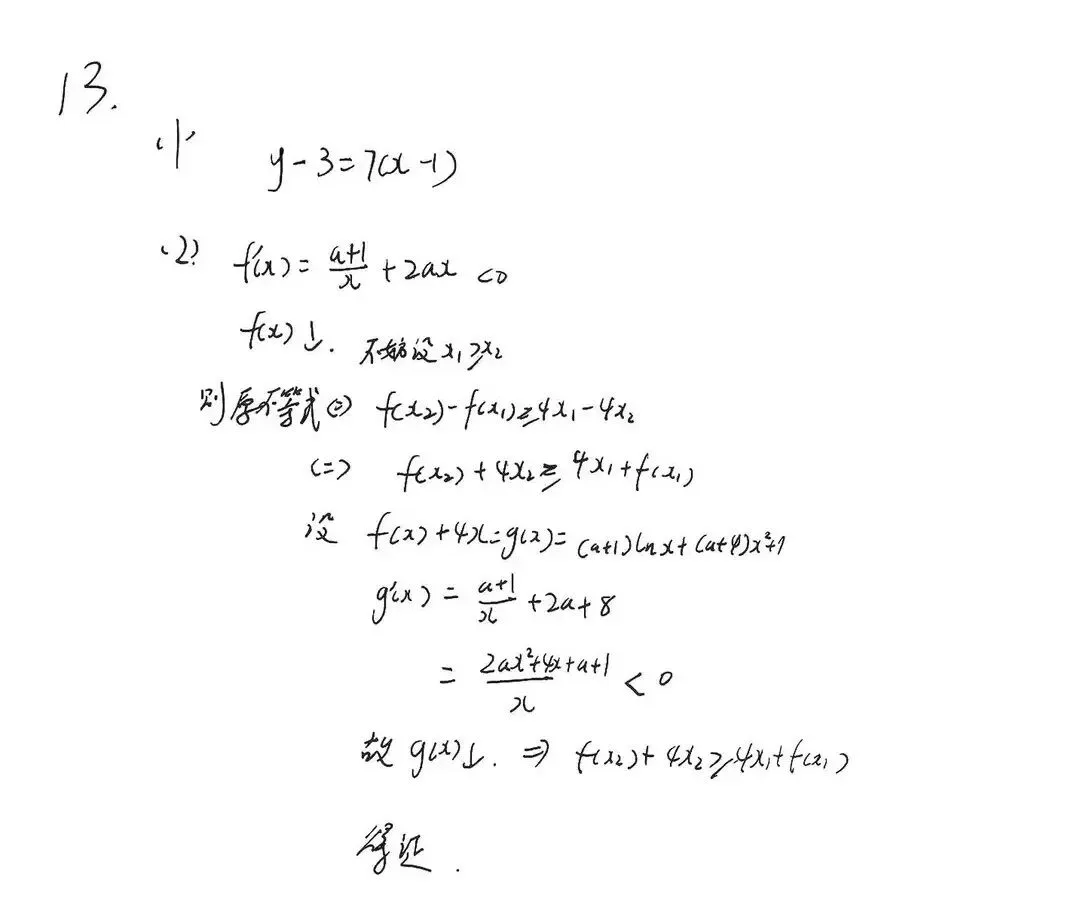 13.
(1) y-3=7(x-1)
(2) f'(x)=\frac{a+1}{x}+2ax <0
f(x)↓. 不妨设x₁≥x₂
则原不等式⇔ f(x₂)-f(x₁)≥4x₁-4x₂
⇔ f(x₂)+4x₂≥4x₁+f(x₁)
设 f(x)+4x=g(x)=(a+1)lnx+(a+4)x²+1
g'(x)=\frac{a+1}{x}+2a+8
=\frac{2ax²+4x+a+1}{x}<0
故g(x)↓. ⇒ f(x₂)+4x₂≥4x₁+f(x₁)
得证.